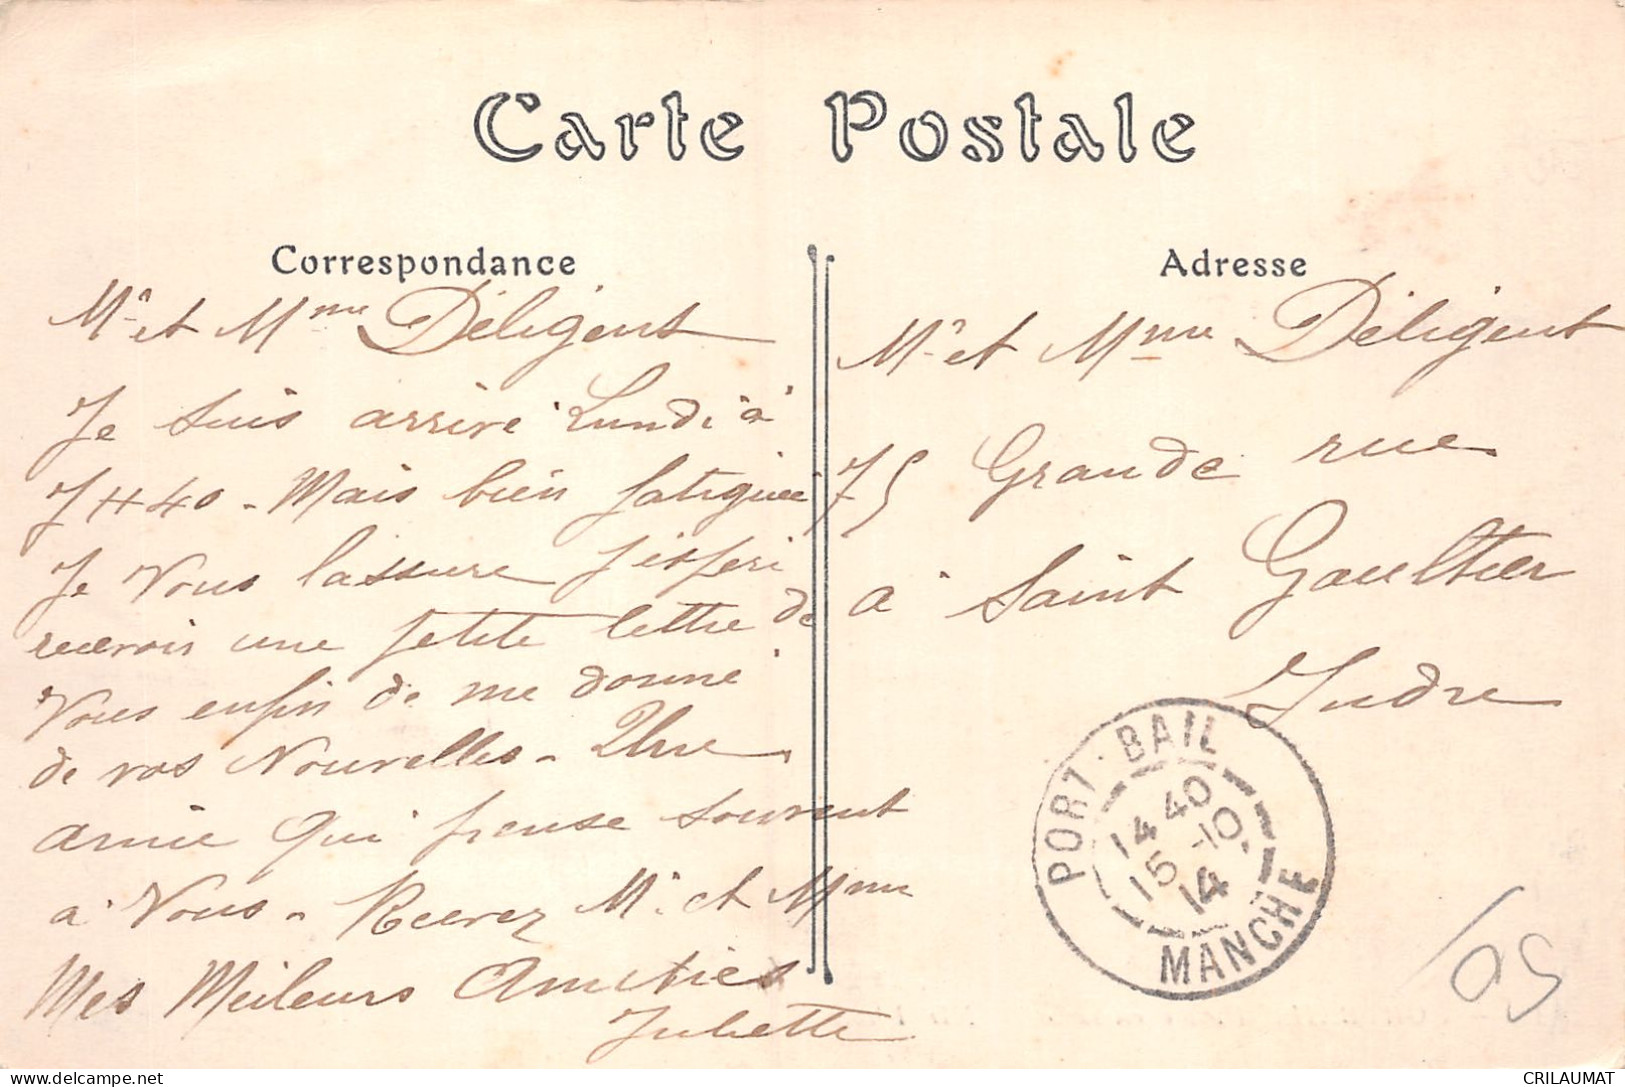 Carte Postale
Correspondance
Mr et Mme Déligent
Je suis arrivé Lundi à
7 H 40 - Mais bien fatiguée
Je Vous l'assure j'espère
recevoir une petite lettre de
Vous enfin de me donné
de vos Nouvelles - Une
amie qui pense souvent
à Vous - Recevez Mr et Mme
Mes Meileurs Amitiés
Juliette
Adresse
Mr et Mme Déligent
75 Grande rue
à Saint Gaultier
Indre
PORT-BAIL
14 40
15 -10
14
MANCHE
CRILAUMAT